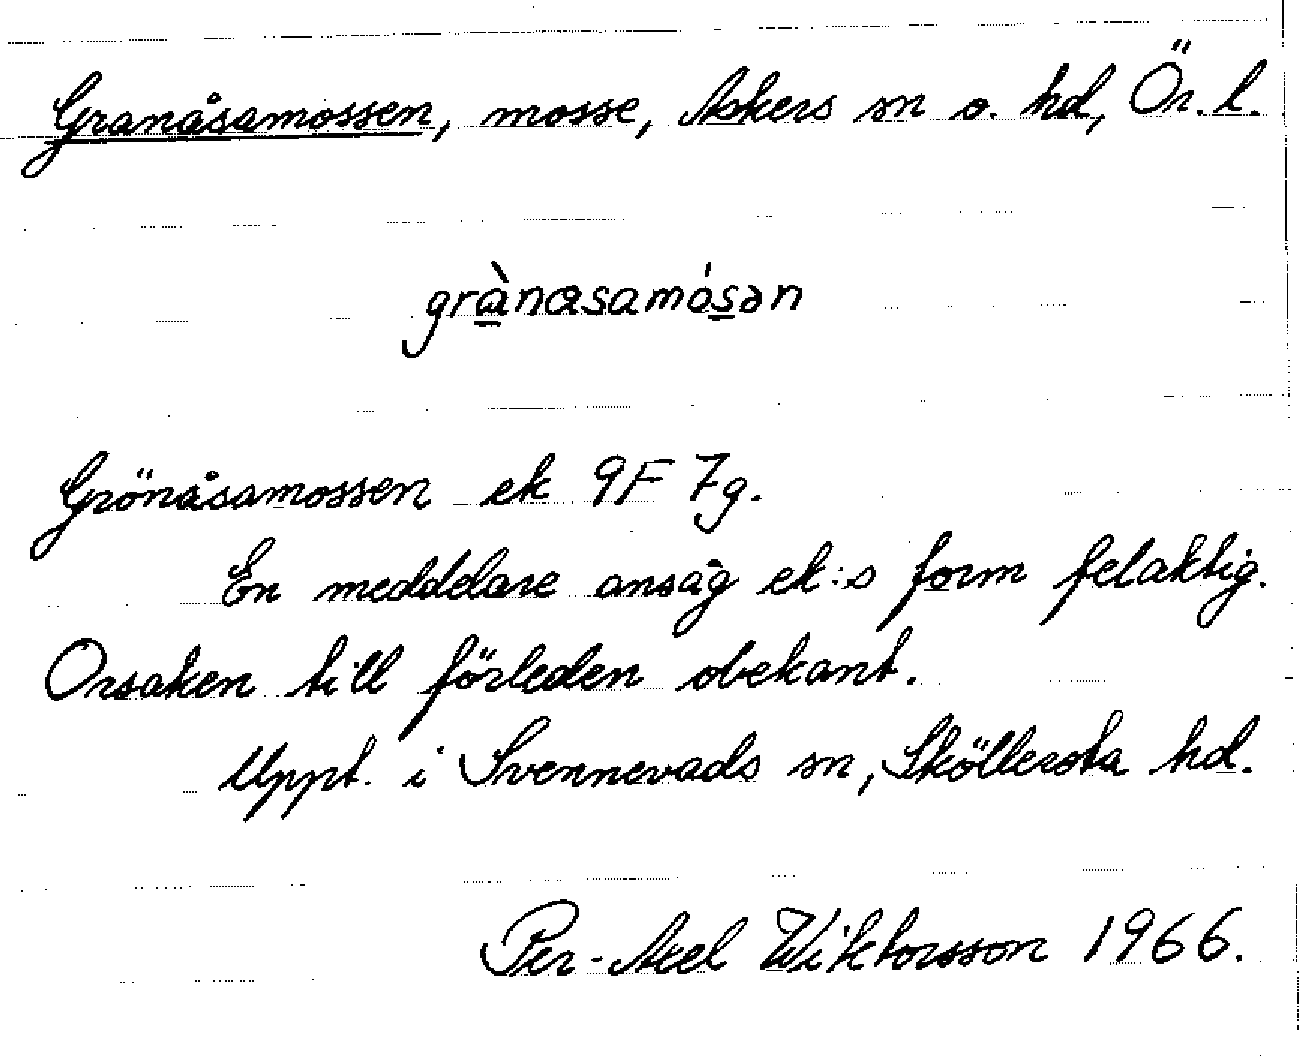 Granåsamossen, mosse, Askers sn o. hd, Ör. l.
grànɑsamósən
Grönåsamossen ek 9F 7g.
En meddelare ansåg ek:s form felaktig.
Orsaken till förleden obekant.
Uppt. i Svennevads sn, Sköllersta hd.
Per-Axel Wiktorsson 1966.